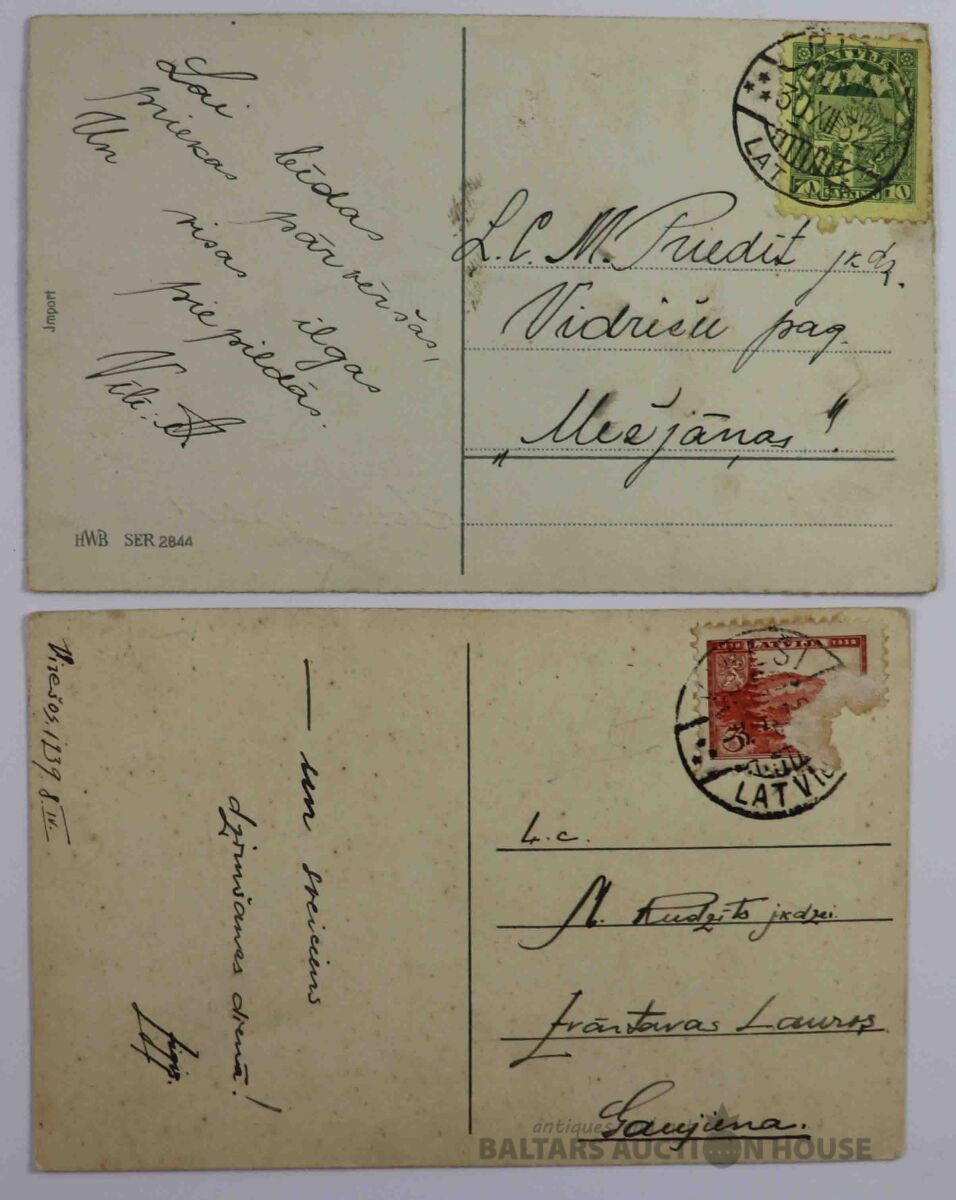 Lai bēdas
priekas pārvēršas,
Un visas ilgas
piepildās.
Jmport
HWB SER 2844
LATVIJA
30 XII 32
LATVIJA
10 10
L. C. M. Priedīt jkdz.
Vidrišu pag.
„Mežjāņos".
Virešos, 1939. 8.IV.
— un sveiciens
dzimšanas dienā!
LATVIJA
3
LATVIJ
L. c.
M. Rudzīts jkdzei
Lauros
Gaujiena.
antiques
BALTARS AUCTION HOUSE